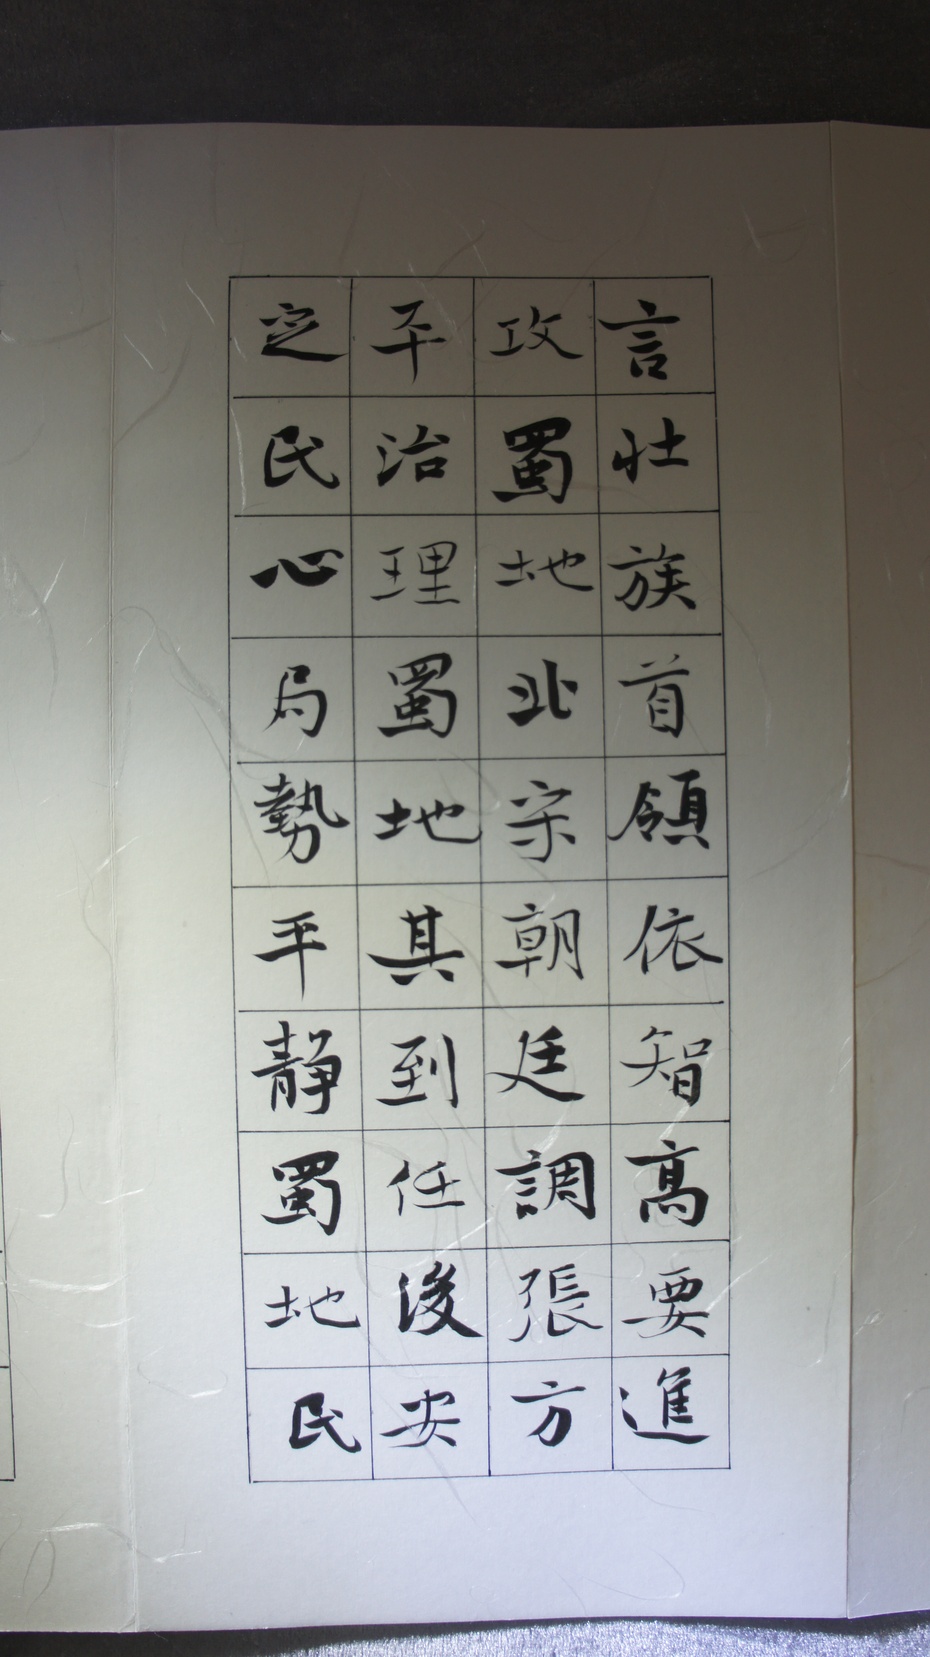 言壮族首領依智高要進
攻蜀地北宋朝廷調張方
平治理蜀地其到任後安
定民心局勢平静蜀地民